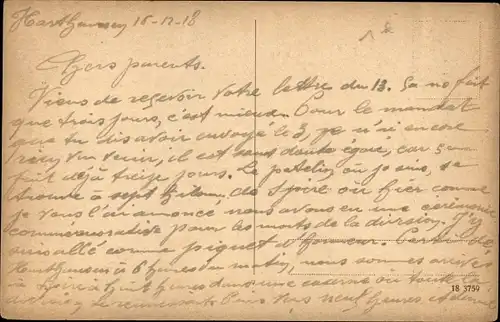 Harthausen 16-12-18
Chers parents.
Viens de recevoir votre lettre du 13. Ça ne fait
que trois jours, c'est mieux. Pour le mandat
que tu dis avoir envoyé le 3, je n'ai encore
rien vu venir, il est sans doute égaré, car ça
fait déjà treize jours. Le patelin où je suis, se
trouve à sept kilom. de Spire où hier comme
je vous l'ai annoncé nous avons eu une cérémonie
commemorative pour les morts de la division. J'y
suis allé comme piquet d'honneur. Parti de
Harthausen à 6 heures du matin, nous sommes arrivés
à huit heures dans une caserne où toute la
division se réunissait. Puis vers neuf heures et demie
18 3759